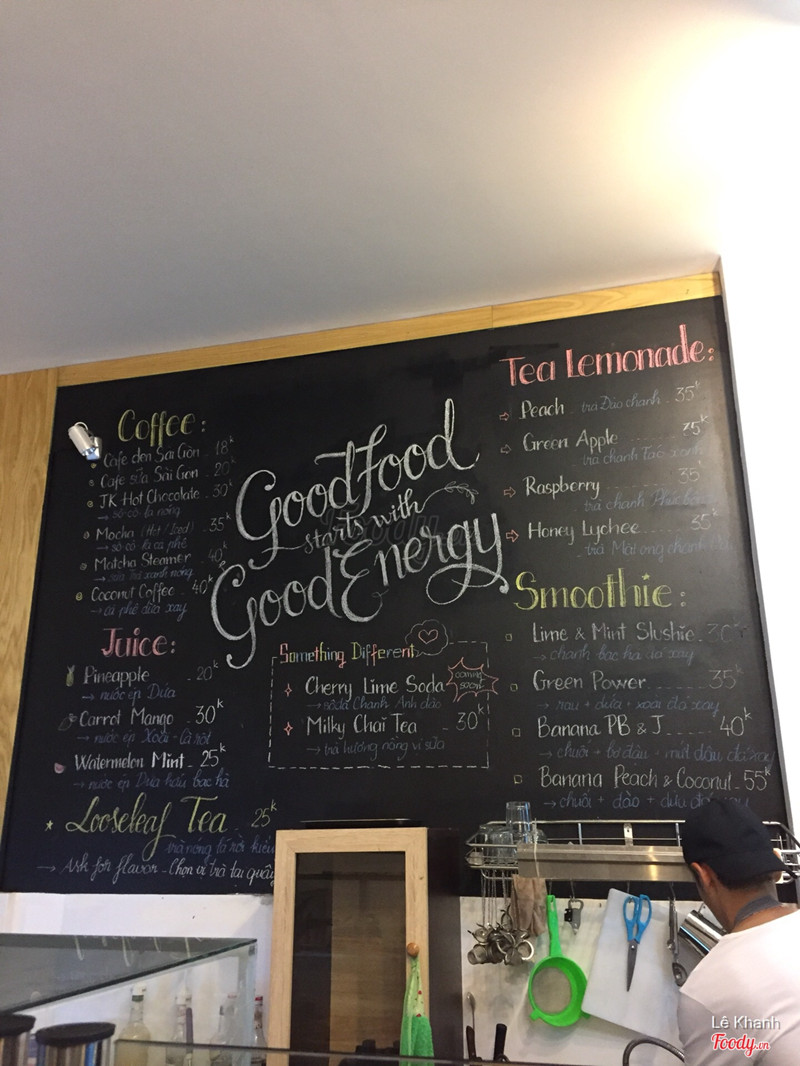 Coffee:
Cafe đen Sài Gòn - 18k
Cafe sữa Sài Gòn - 20k
JK Hot Chocolate - 30k
→ sô cô la nóng
Mocha (Hot / Iced) - 35k
→ sô cô la cà phê
Matcha Steamer - 40k
→ sữa trà xanh nóng
Coconut Coffee - 40k
→ cà phê dừa xay
Juice:
Pineapple - 20k
→ nước ép Dứa
Carrot Mango - 30k
→ nước ép Xoài - Cà rốt
Watermelon Mint - 25k
→ nước ép Dưa hấu bạc hà
Looseleaf Tea 25k
trà nóng lá rời
→ Ask for flavor - Chọn vị trà tại quầy
Good Food
starts with
Good Energy
Something Different
Cherry Lime Soda
coming soon
→ sôda Chanh Anh đào
Milky Chai Tea - 30k
→ trà hương nồng vị sữa
Tea Lemonade:
Peach - trà Đào chanh - 35k
Green Apple 35k
trà chanh Táo xanh
Raspberry 35k
trà chanh
Honey Lychee 35k
- trà Mật ong chanh
Smoothie:
Lime & Mint Slushie - 30k
→ chanh bạc hà đá xay
Green Power 35k
→ rau + dứa + xoài đá xay
Banana PB & J 40k
→ chuối + bơ đậu + mứt dâu đá xay
Banana Peach & Coconut - 55k
→ chuối + đào + dừa đá xay
Lê Khanh
Foody.vn